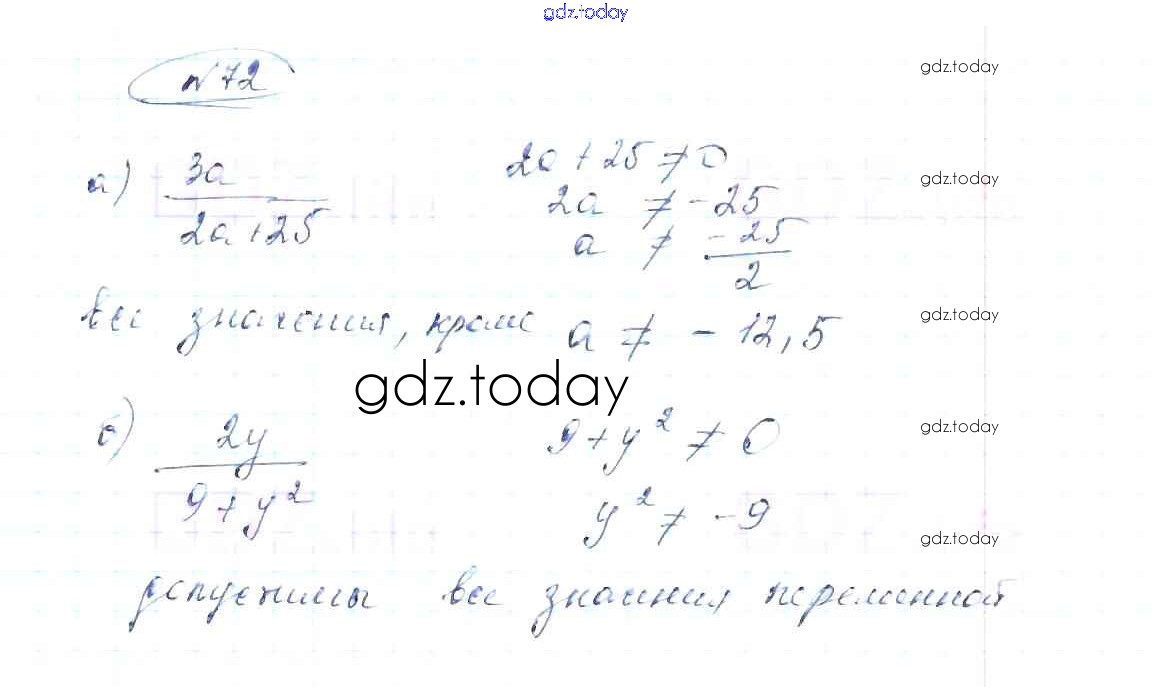 gdz.today
№72
gdz.today
а) 3a / 2a+25
2a + 25 ≠ 0
gdz.today
2a ≠ -25
a ≠ -25/2
все значения, кроме a ≠ - 12,5
gdz.today
gdz.today
б) 2y / 9+y²
9+y² ≠ 0
gdz.today
y² ≠ -9
gdz.today
допустимы все значения переменной